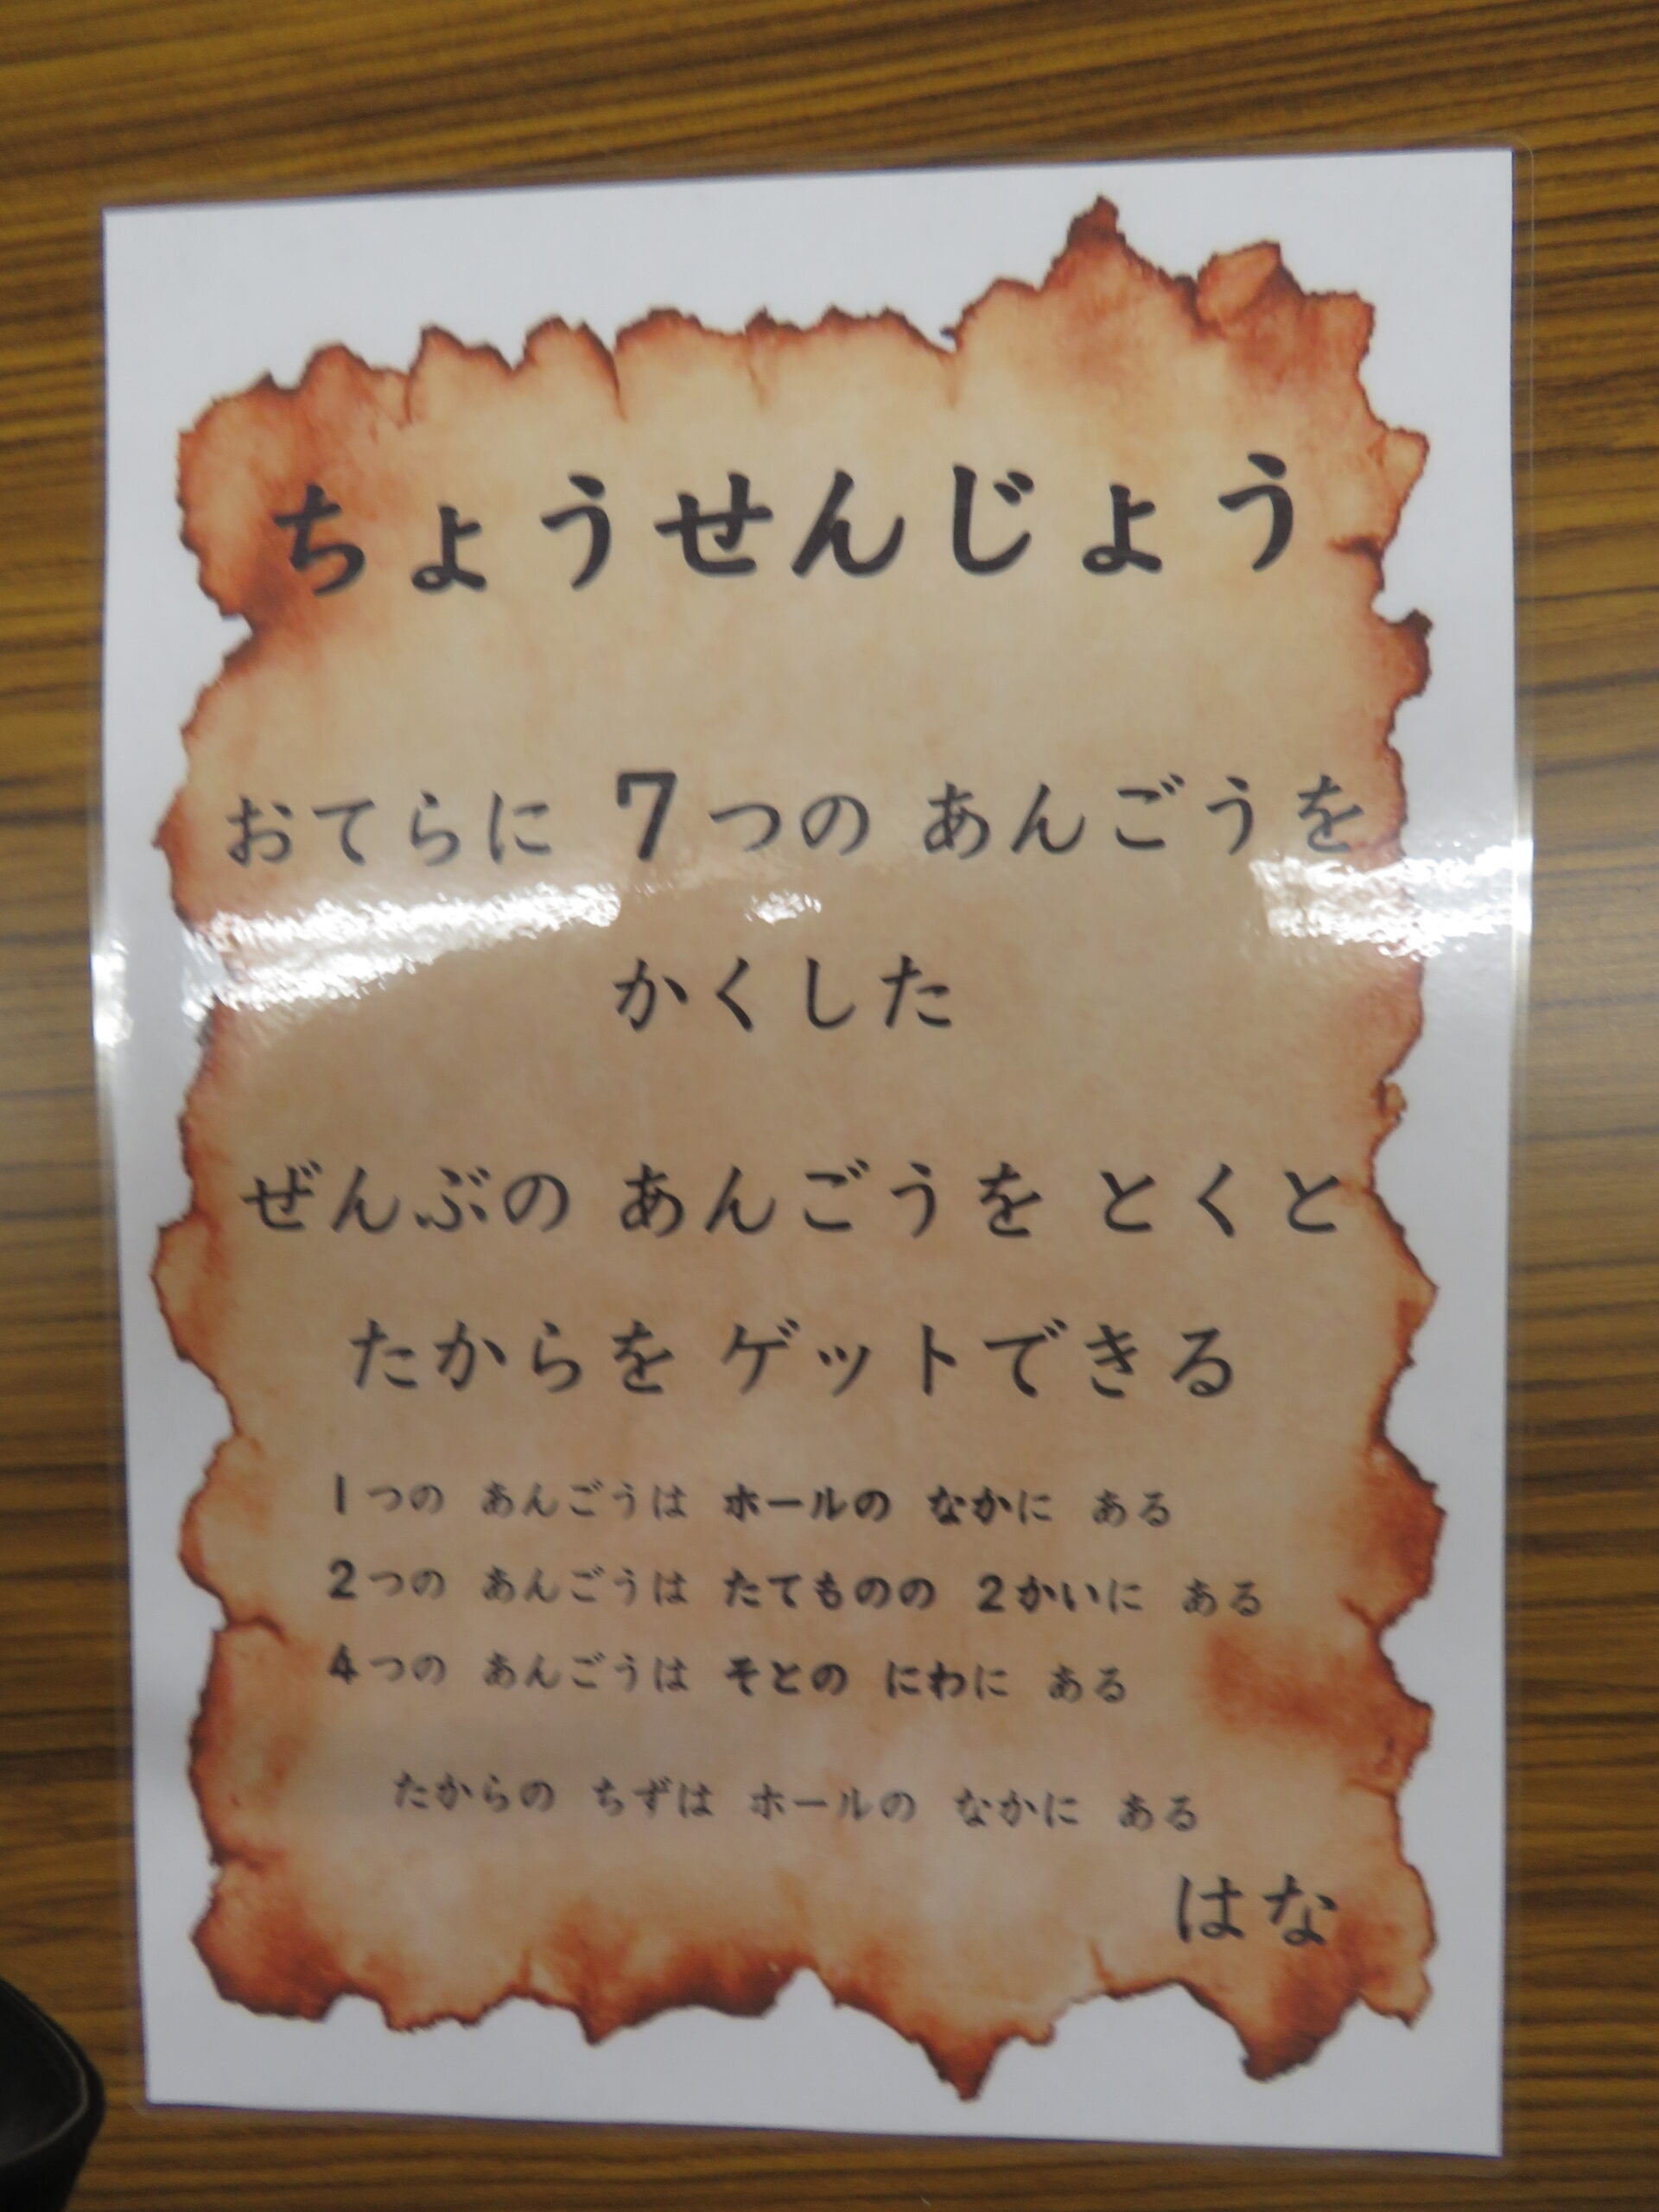 ちょうせんじょう
おてらに 7つの あんごうを
かくした
ぜんぶの あんごうを とくと
たからを ゲットできる
1つの あんごうは ホールの なかに ある
2つの あんごうは たてものの 2かいに ある
4つの あんごうは そとの にわに ある
たからの ちずは ホールの なかに ある
はな